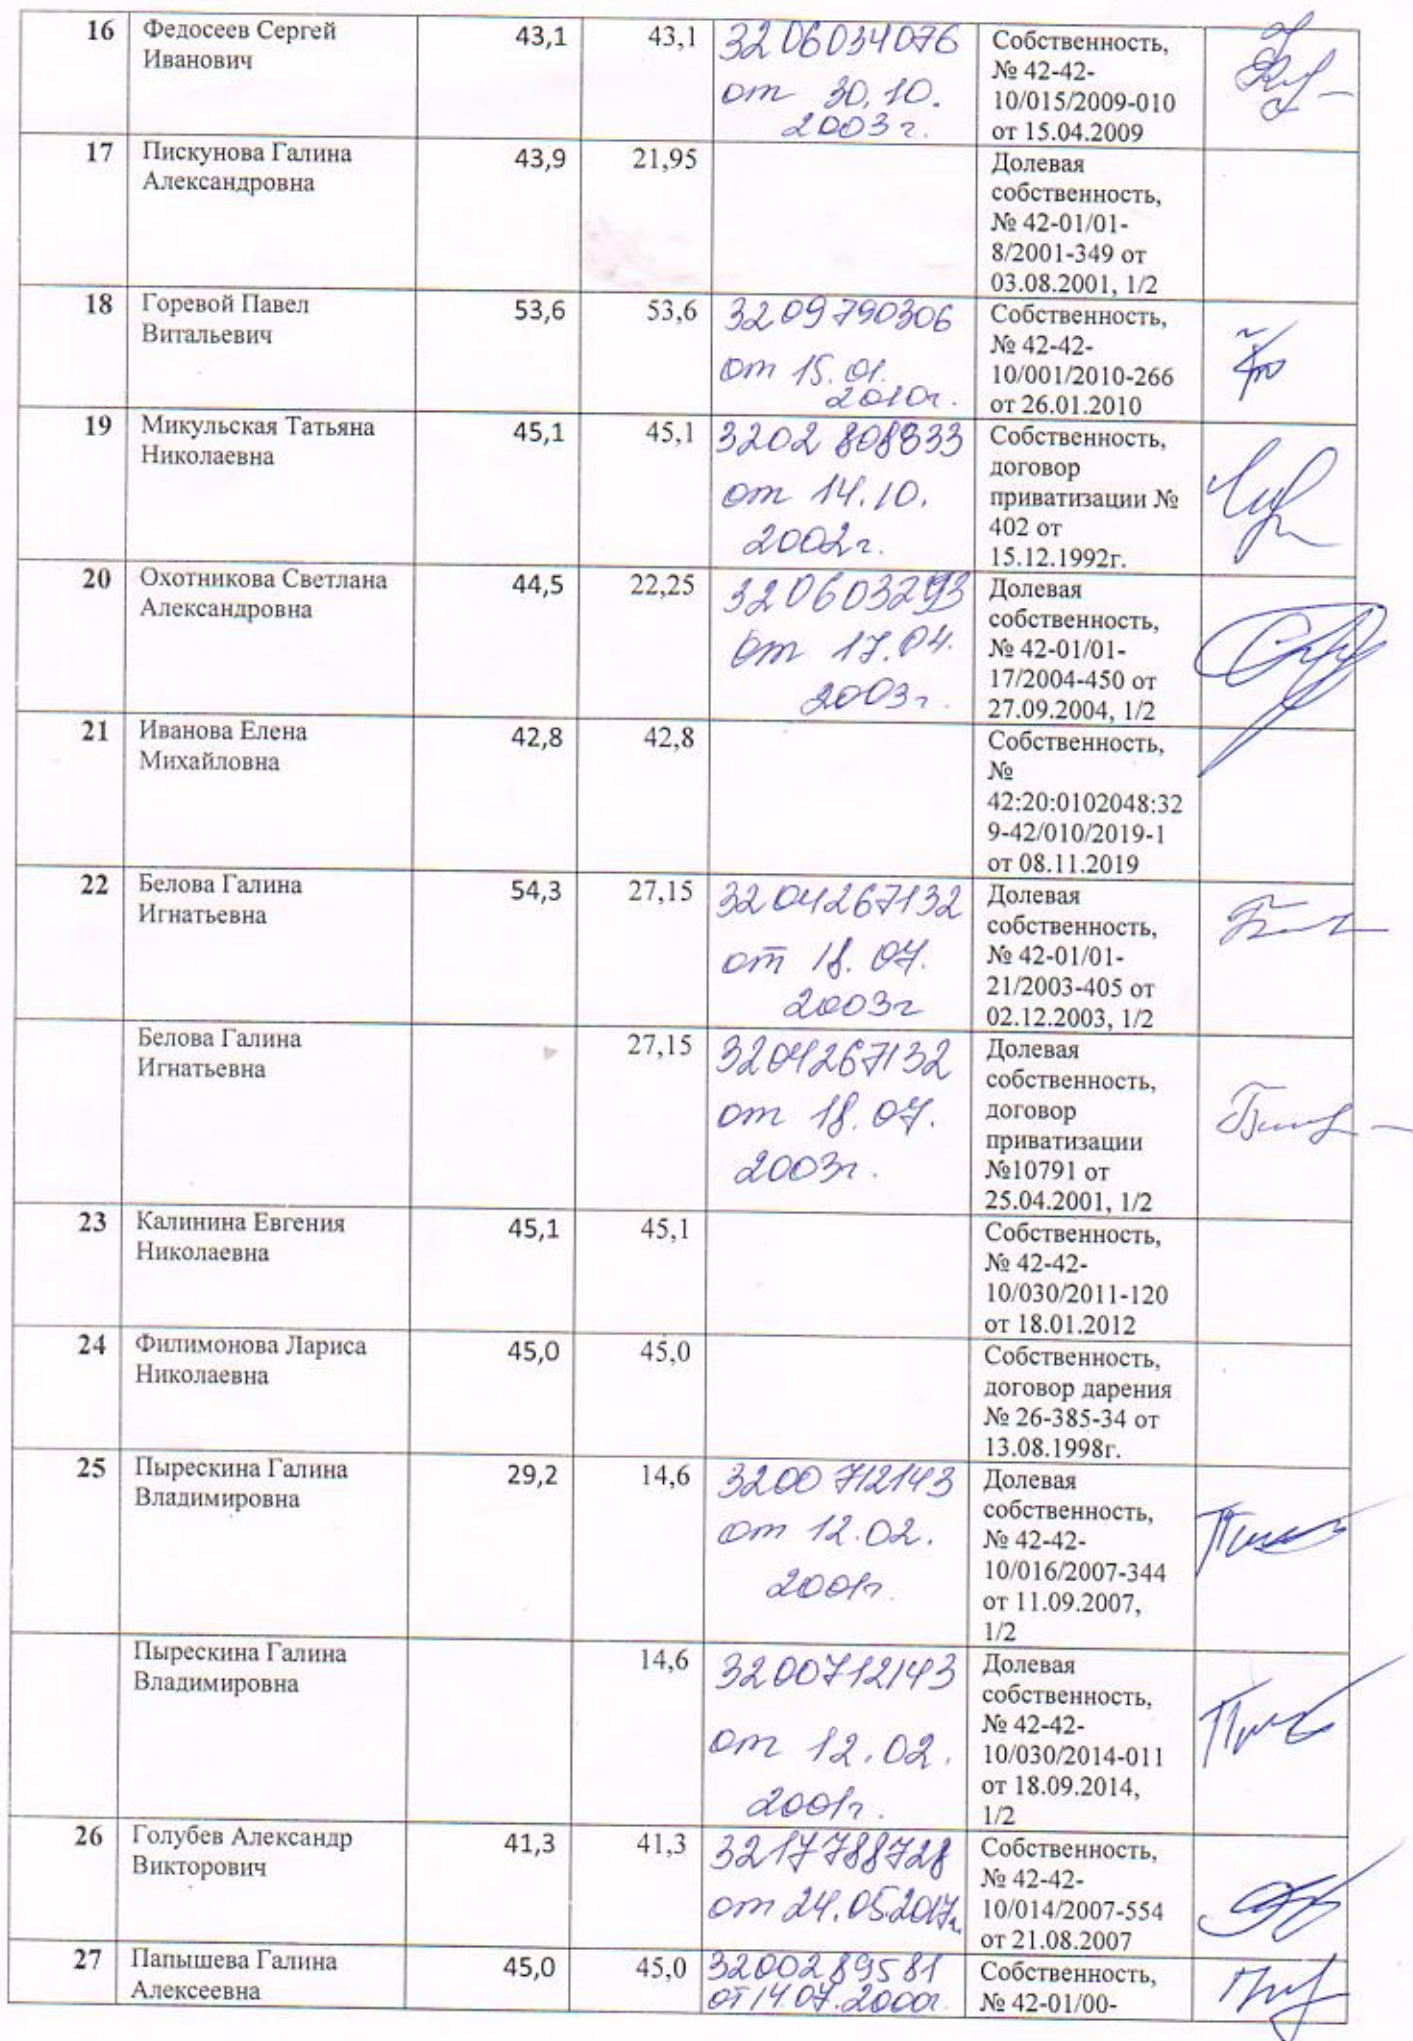 16 Федосеев Сергей Иванович 43,1 43,1 3206034076 от 30.10. 2003 г. Собственность, № 42-42-10/015/2009-010 от 15.04.2009
17 Пискунова Галина Александровна 43,9 21,95 Долевая собственность, № 42-01/01-8/2001-349 от 03.08.2001, 1/2
18 Горевой Павел Витальевич 53,6 53,6 3209790306 от 15.01. 2010г. Собственность, № 42-42-10/001/2010-266 от 26.01.2010
19 Микульская Татьяна Николаевна 45,1 45,1 3202 808833 от 14.10. 2002г. Собственность, договор приватизации № 402 от 15.12.1992г.
20 Охотникова Светлана Александровна 44,5 22,25 320603293 от 17.04. 2003г. Долевая собственность, № 42-01/01-17/2004-450 от 27.09.2004, 1/2
21 Иванова Елена Михайловна 42,8 42,8 Собственность, № 42:20:0102048:329-42/010/2019-1 от 08.11.2019
22 Белова Галина Игнатьевна 54,3 27,15 3204267132 от 18.07. 2003г Долевая собственность, № 42-01/01-21/2003-405 от 02.12.2003, 1/2
Белова Галина Игнатьевна 27,15 3204267132 от 18.07. 2003г. Долевая собственность, договор приватизации №10791 от 25.04.2001, 1/2
23 Калинина Евгения Николаевна 45,1 45,1 Собственность, № 42-42-10/030/2011-120 от 18.01.2012
24 Филимонова Лариса Николаевна 45,0 45,0 Собственность, договор дарения № 26-385-34 от 13.08.1998г.
25 Пырескина Галина Владимировна 29,2 14,6 3200 712143 от 12.02. 2001г. Долевая собственность, № 42-42-10/016/2007-344 от 11.09.2007, 1/2
Пырескина Галина Владимировна 14,6 3200712143 от 12.02. 2001г. Долевая собственность, № 42-42-10/030/2014-011 от 18.09.2014, 1/2
26 Голубев Александр Викторович 41,3 41,3 3217788728 от 24.05.2017г. Собственность, № 42-42-10/014/2007-554 от 21.08.2007
27 Папышева Галина Алексеевна 45,0 45,0 3200289581 от 14.07.2000г. Собственность, № 42-01/00-